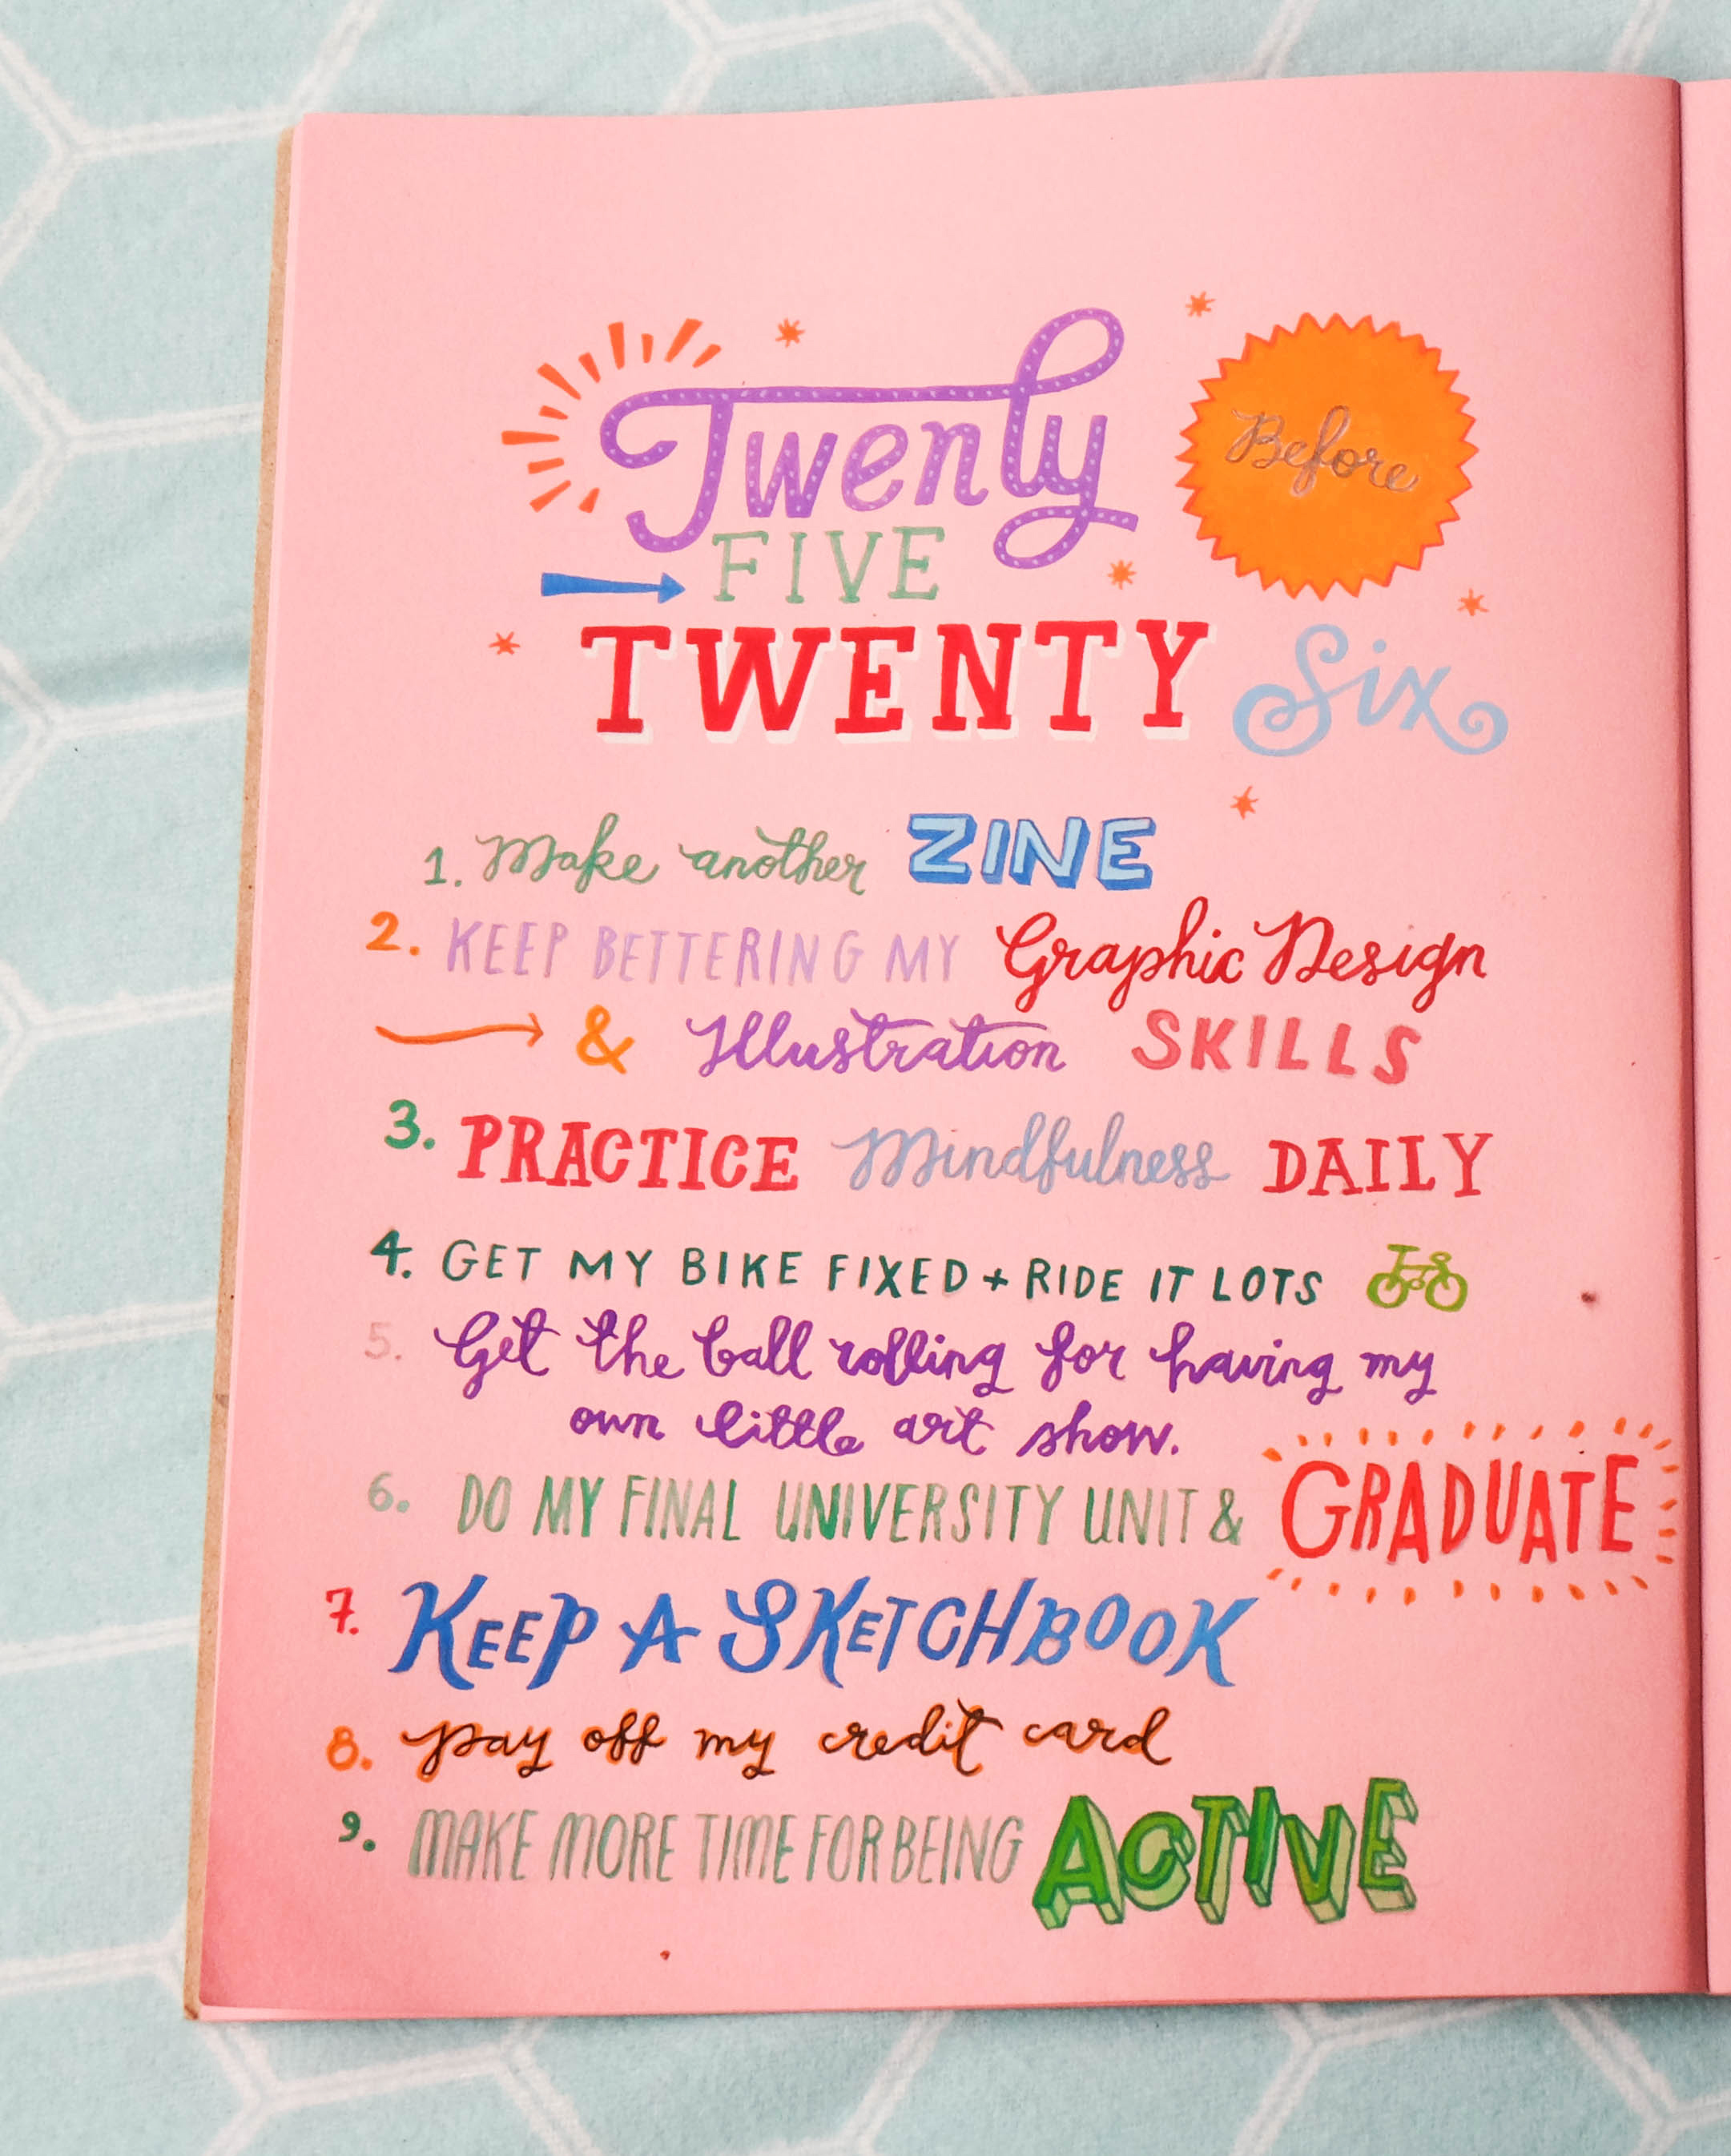 Twenty
Before
FIVE
TWENTY Six
1. Make another ZINE
2. KEEP BETTERING MY Graphic Design
& Illustration SKILLS
3. PRACTICE Mindfulness DAILY
4. GET MY BIKE FIXED + RIDE IT LOTS
5. Get the ball rolling for having my
own little art show.
6. DO MY FINAL UNIVERSITY UNIT & GRADUATE
7. KEEP A SKETCHBOOK
8. pay off my credit card
9. MAKE MORE TIME FOR BEING ACTIVE